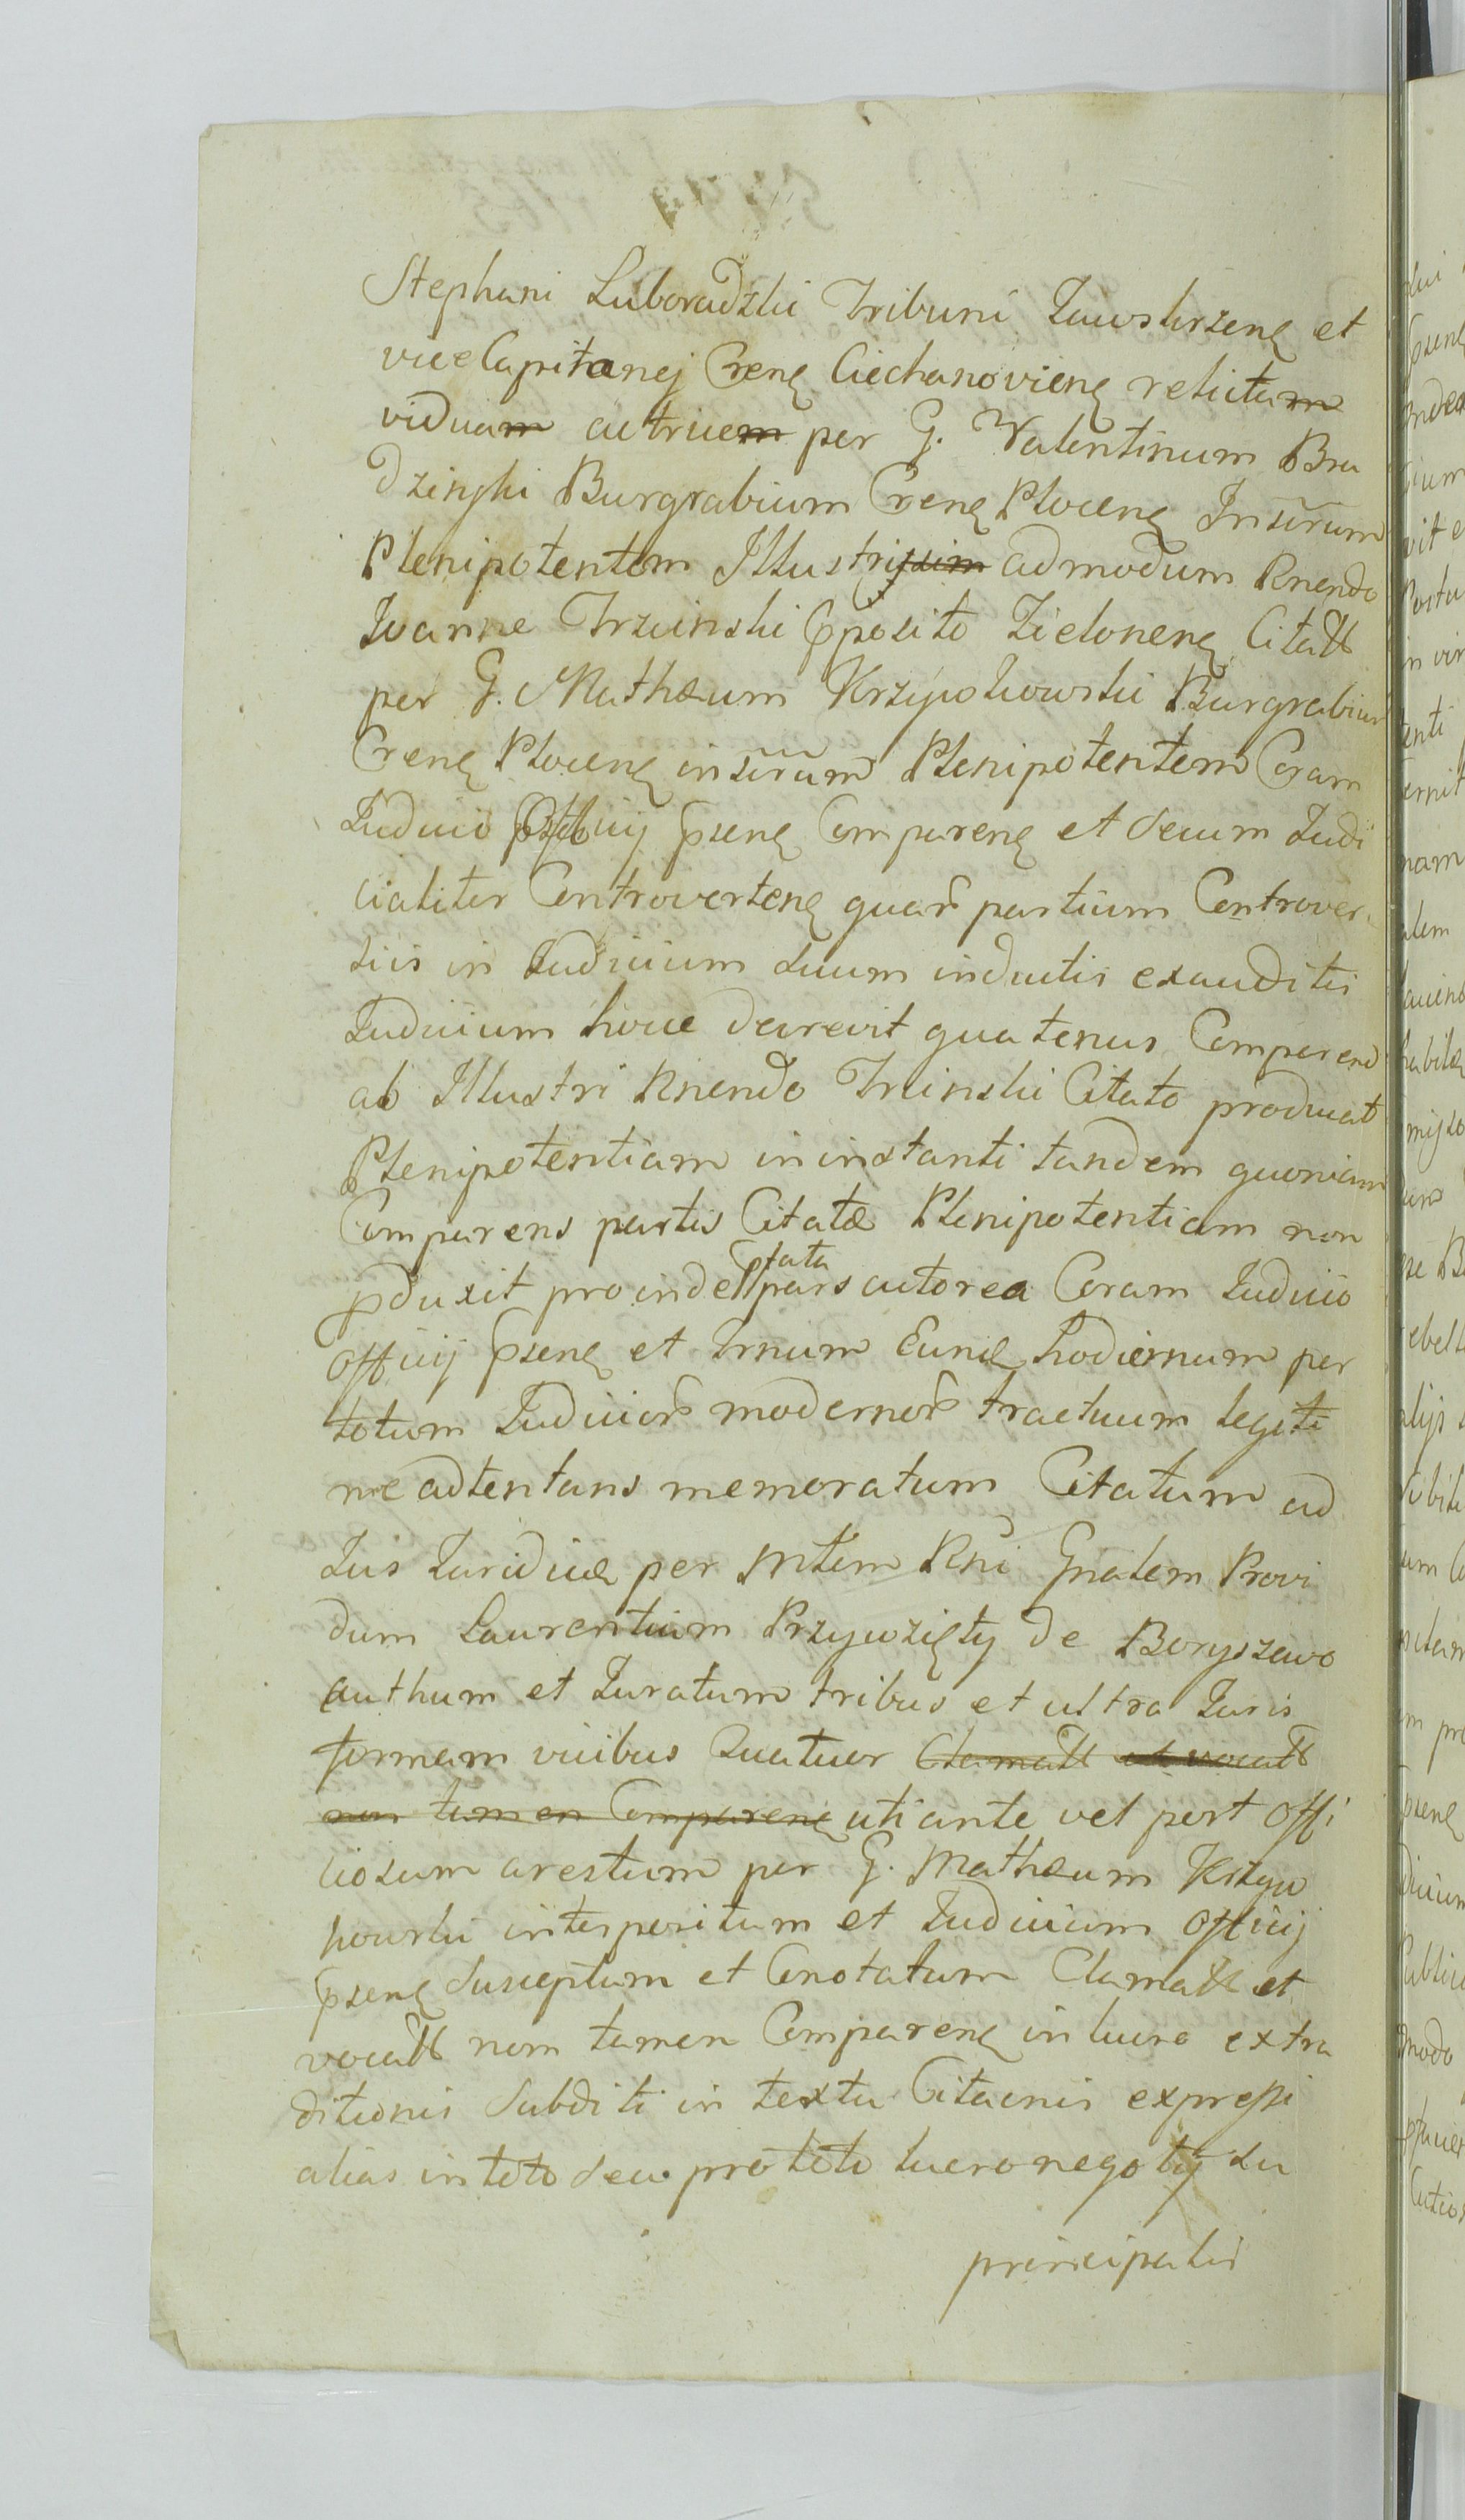 Stephani Luboradzki Tribuni Zawskrzenę et
viceCapitanej Crenę Ciechanovienę relictam
viduam actricem per G. Valentinum Bra
dzinski Burgrabium Crenę Plocenę Inscrum
Plenipotentem Illustrissim admodum Rnendo
Joanne Trzcinski Pposito Zielonenę Citatt
per G. Mathæum Krzypkowski Burgrabium
Crenę Plocenę inscrum Plenipotentem Coram
Judicio Officij Psenę Comparenę et secum Judi
cialiter Controvertenę quar partium Controver
siis in Judicium suum inductis exauditis
Judicium hocce decrevit quatenus Comparens
ab Illustri Rnendo Trcinski Citato producat
Plenipotentiam in instanti tandem quoniam
Comparens partis Citatæ Plenipotentiam non
pduxit proinde pars actorea Coram Judicio
Officij Psenę et trnum Eunę hodiernum per
totum Judicior modernor tractuum legiti
me adtentans memoratum Citatum ad
Jus Juridicę per Mtem Rni Gnalem Provi
dum Laurentium Przywzięty de Boryszewo
authum et Juratum tribus et ultra Juris
formam vicibus Quatuor Clamatt et vocatt
non tamen Comparenę uti ante vel post offi
ciosum arestum per G. Mathæum
interpositum et Judicium Officij
Psenę Susceptum et Conotatum Clamatt et
vocatt non tamen Comparenę in lucro extra
ditionis Subditi in textu Citaenis expressi
alias in toto seu pro toto lucro negotij su
principalis